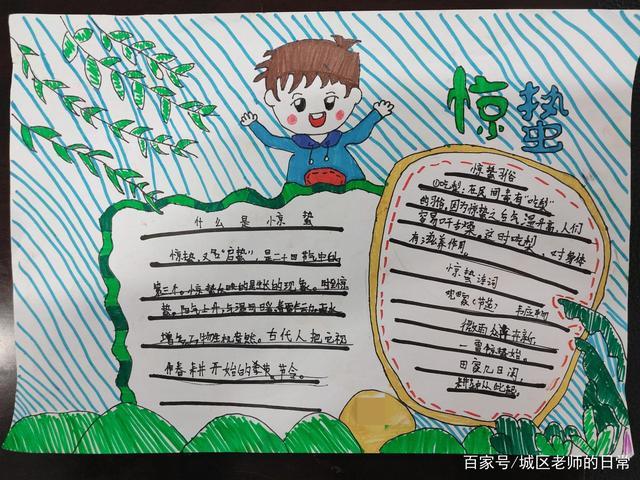 惊蛰
什么是惊蛰
惊蛰，又名“启蛰”，是二十四节气中的
第三个。惊蛰反映的是自然的现象。时至惊
蛰，阳气上升、气温回暖、春雷
增多，万物生机盎然。古代人把它视
作春耕开始的节令。
惊蛰习俗
①吃梨：在民间素有“吃梨”
的习俗，因为惊蛰之后气温升高，人们
容易口干舌燥。这时吃梨，对身体
有滋养作用。
惊蛰诗词
观田家（节选）韦应物
微雨众卉新，
一雷惊蛰始。
田家几日闲，
耕种从此起。
百家号/城区老师的日常